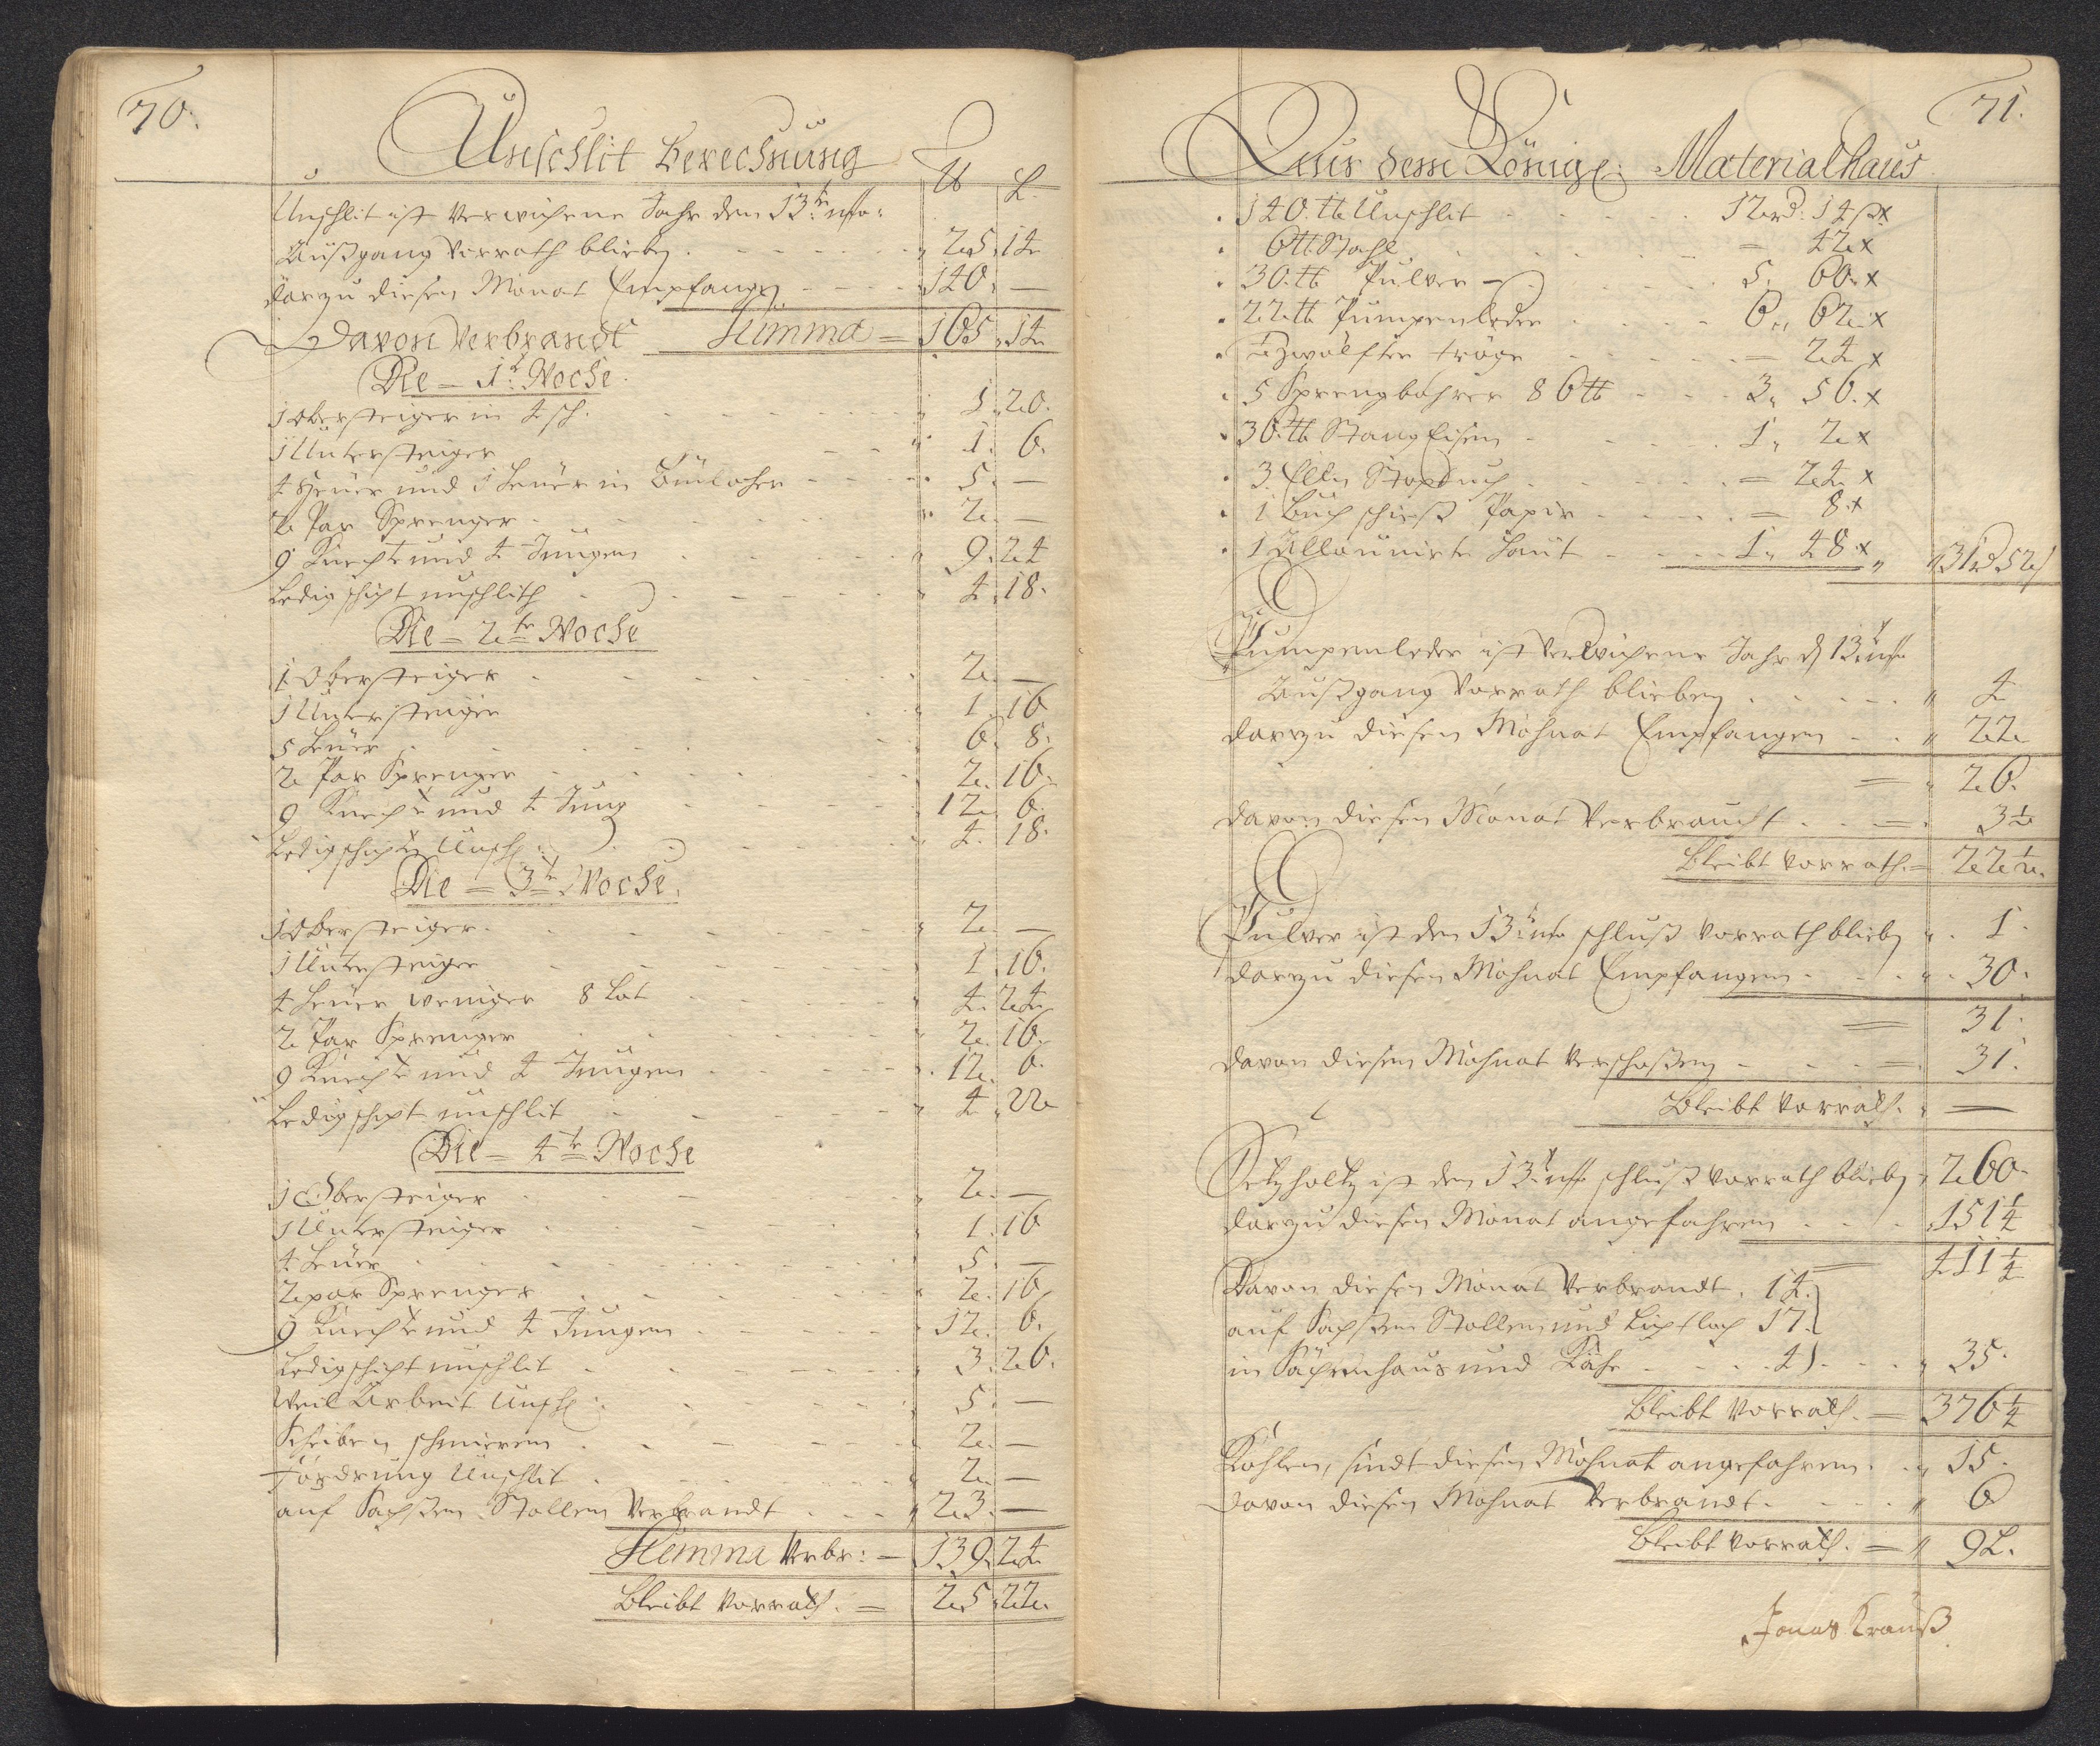 70.
Unschlit berechnung
℔ L.
Unschlit ist verwichene Jahr den 13te mo:
Außgang Vorrath blieben . . . . . . 25. 14
darzu diesen Monat Empfangen . . . . 140. —
Davon Verbrandt Summa = 165. 14
Die = 1te Woche
1 Obersteiger in 4 sch. . . . . . 1. 20.
1 Untersteiger . . 1. 6.
4 Heüer und 1 Heüer in . . . . 5. —
2 Par Sprenger . . . . . 2. —
9 Knecht und 4 Jungen . . . . 9. 24
Ledigschicht unschlith . . . . . 4. 18.
Die = 2te Woche
1 Obersteiger . . . . . 2. —
1 Untersteiger . . 1. 16
5 Heüer . . . . . 6. 8.
2 Par Sprenger . . . . . 2. 16.
9 Knecht und 4 Jung . . . . 12. 6.
Ledigschicht Unschl: . . . . 4. 18.
Die = 3te Woche.
1 Obersteiger . . . . . 2. —
1 Untersteiger . . . . . 1. 16.
4 Heüer weniger 8 Lot . . . . 4. 24
2 Par Sprenger . . . . . 2. 16.
9 Knecht und 4 Jungen . . . . . 12. 6.
Ledigschicht unschlit . . . . . 4. 22
Die = 4te Woche
1 Obersteiger . . . . . 2. —
1 Untersteiger . . . . . 1. 16
4 Heüer . . . . . 5. —
2 par Sprenger . . . . . 2. 16.
9 Knecht und 4 Jungen . . . . . 12. 6.
Ledigschicht unschlit . . . . . 3. 26.
Weil Arbeit Unschl: . . . . . 5. —
Scheiben schmieren . . . . . 2. —
Fördrung Unschlit . . . . . 2. —
auf Sachsen Stollen Verbrandt . . . 23. —
Summa Verbr: = 139. 24
Bleibt Vorrath. = 25. 22
71.
Aus dem Königl: Materialhaus
140. ℔ Unschlit . . . . . 12 rd: 14 ß x
6 ℔ Stahl . . . . = 42 x
30. ℔ Pulver . . . . 5. 60. x
22 ℔ Pumpenleder . . . . 6. 62 x
tröge . . . . = 24 x
5 Sprengbohrer 8 6 ℔ . . . 3. 56. x
36. ℔ Stang Eisen . . . . 1. 2 x
3 Ellen . . . . = 24 x
1 Buch schieß Papir . . . . = 8. x
1 Haut . . . . 1. 48. x 31 rd 52 ß
Pumpenleder ist verwichene Jahr d 13te mo
Außgang Vorrath blieben . . . . . 4
darzu diesen Mohnat Empfangen . . 22
= 26.
davon diesen Monat Verbraucht . . = 3½
Bleibt Vorrath. = 22½.
Pulver ist den 13te mo schluß Vorrath blieb . 1.
darzu diesen Mohnat Empfangen . . . . 30.
= 31.
davon diesen Mohnat Verschoßen . . . = 31.
Bleibt Vorrath. —
Setzholtz ist den 13te mo schluß Vorrath blieb 260.
darzu diesen Monat angefahren . . . 151¼
= 411¼
Davon diesen Monat Verbrandt. 14.
auf Sachsen Stollen und 17.
in und . . . 4) . . . 35.
Bleibt Vorrath. = 376¼
Kohlen, sindt diesen Mohnat angefahren . . 15.
davon diesen Mohnat Verbrandt. . . . 6
Bleibt Vorrath. = 9 L.
Jonas Krauß